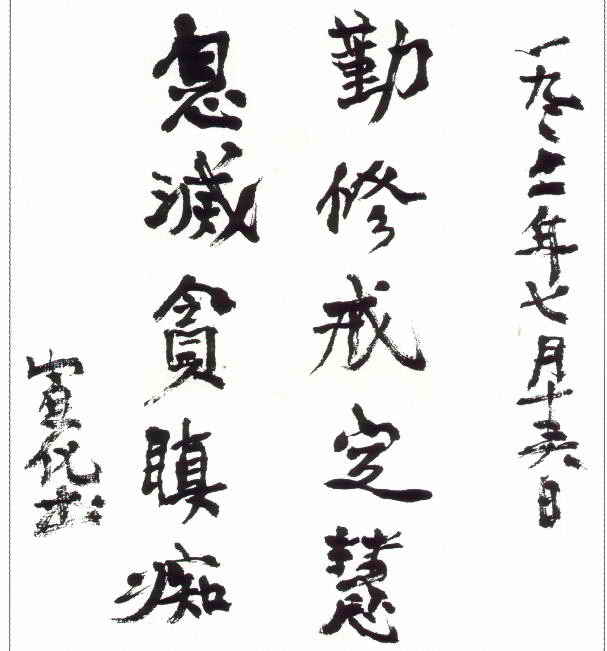 一九 年七月十 日
勤修戒定慧
息滅貪瞋痴
宣化书